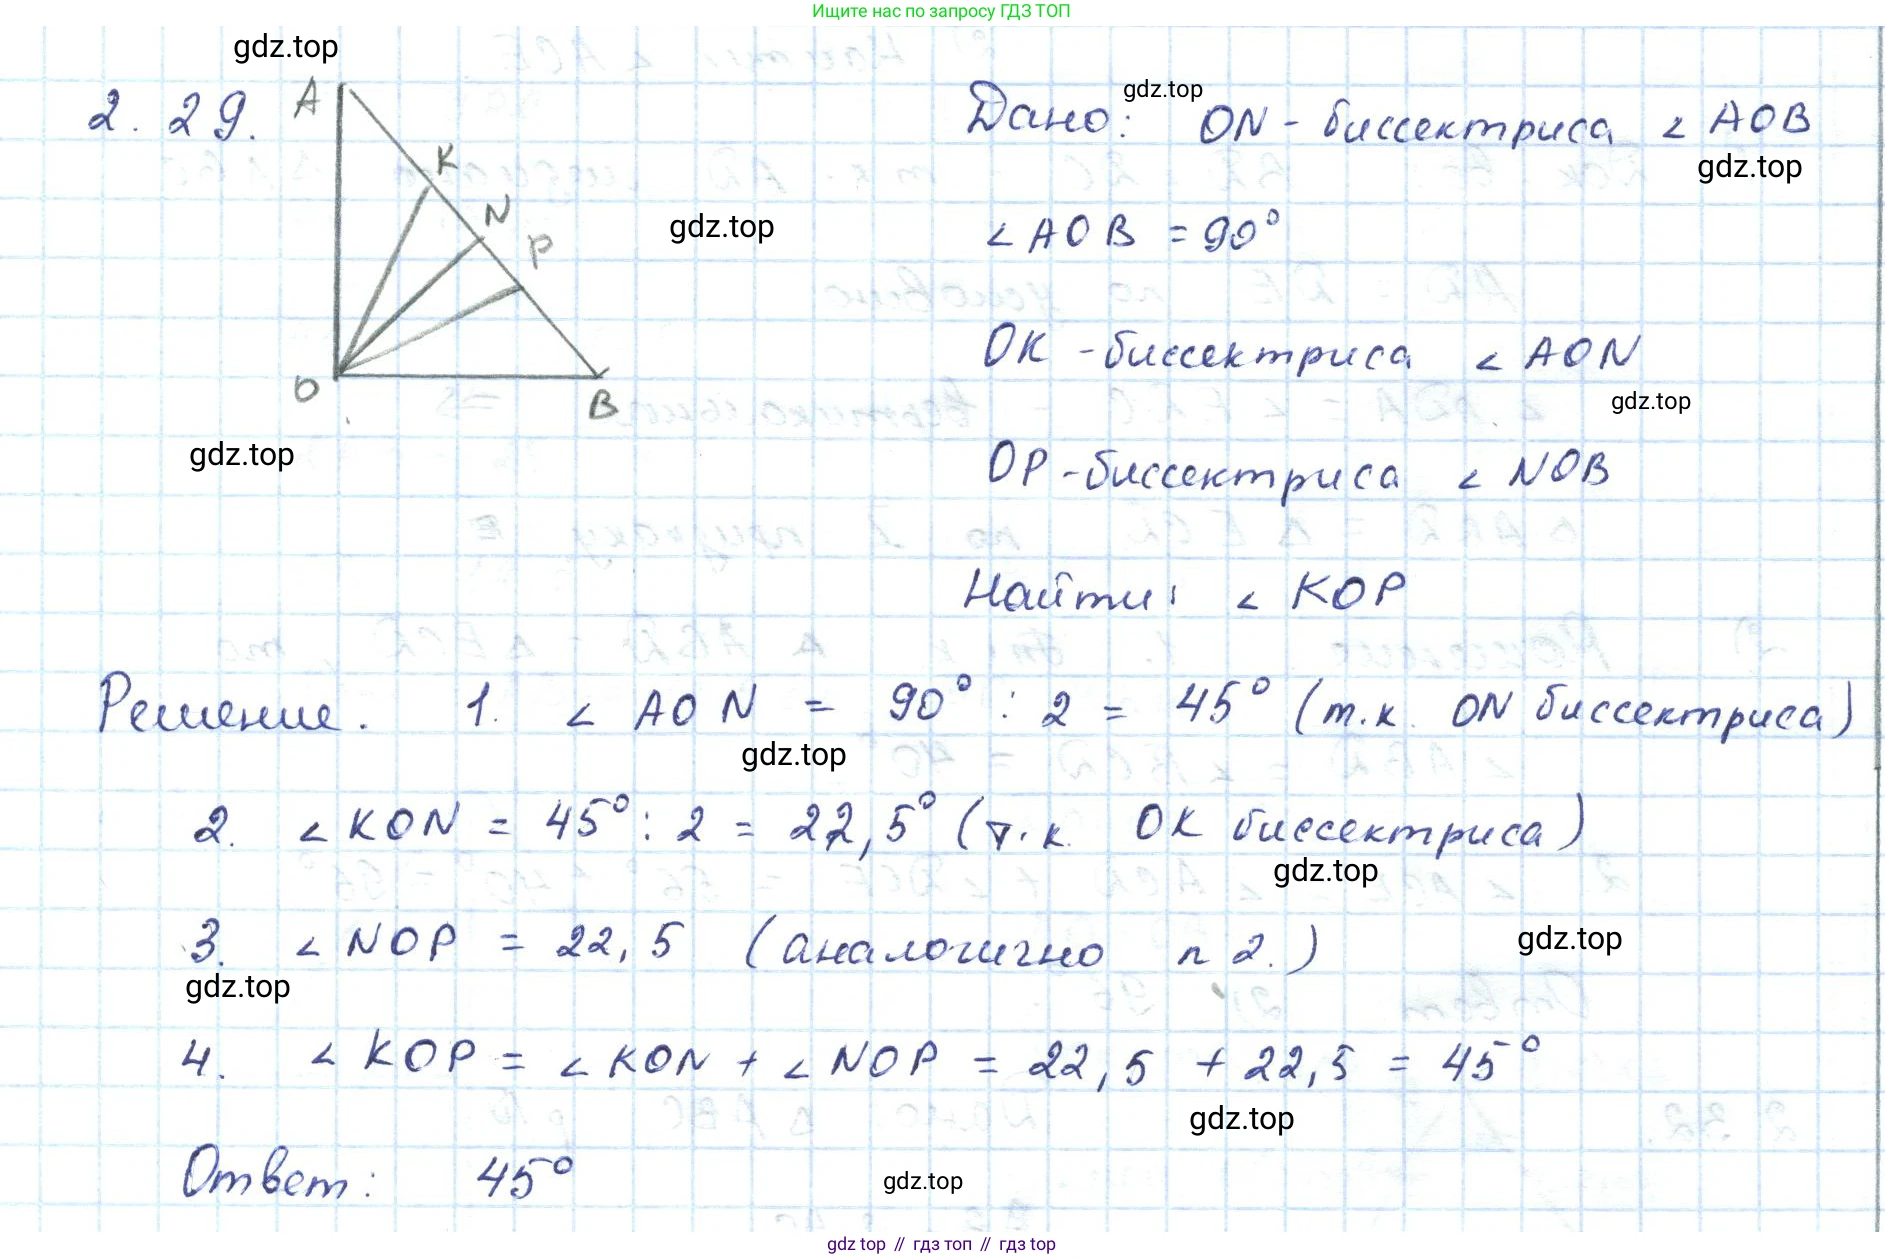 Ищите нас по запросу ГДЗ ТОП
gdz.top
2.29.
A
K
N
P
O
B
gdz.top
gdz.top
Дано: ON - биссектриса ∠ AOB
gdz.top
gdz.top
∠ AOB = 90°
OK - биссектриса ∠ AON
gdz.top
OP - биссектриса ∠ NOB
Найти: ∠ KOP
Решение. 1. ∠ AON = 90° : 2 = 45° (т.к. ON биссектриса)
gdz.top
2. ∠ KON = 45° : 2 = 22,5° (т.к. OK биссектриса)
gdz.top
3. ∠ NOP = 22,5 (аналогично п 2.)
gdz.top
gdz.top
4. ∠ KOP = ∠ KON + ∠ NOP = 22,5 + 22,5 = 45°
gdz.top
Ответ: 45°
gdz.top
gdz top // гдз топ // гдз top